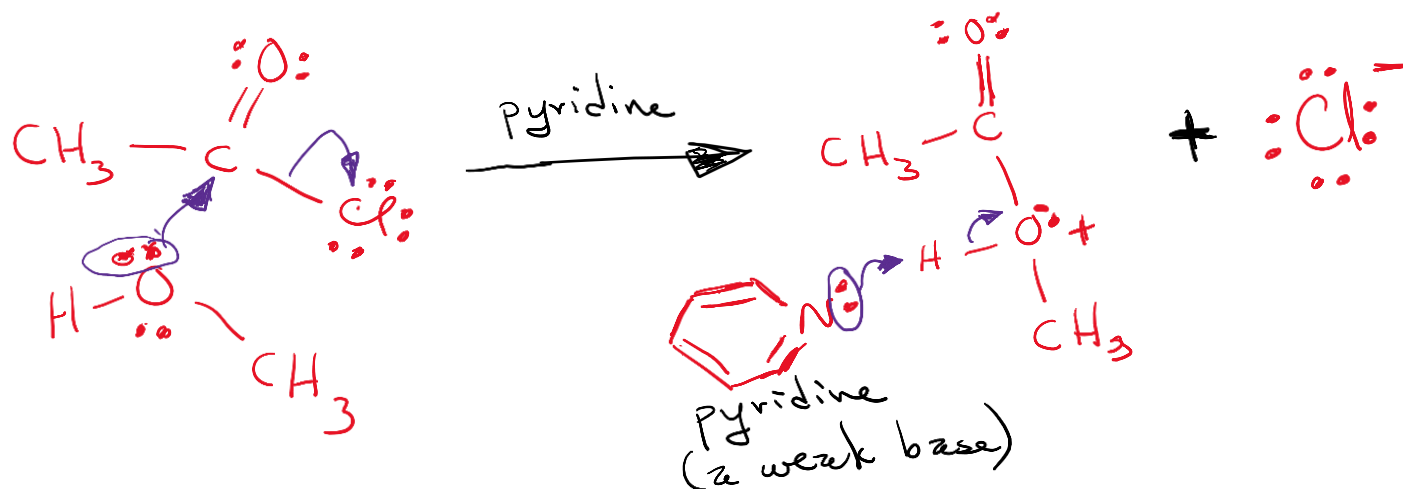 O
CH3 C Cl
H O
CH3
pyridine
O
CH3 C
H O +
CH3
+ Cl −
N
pyridine
(a weak base)